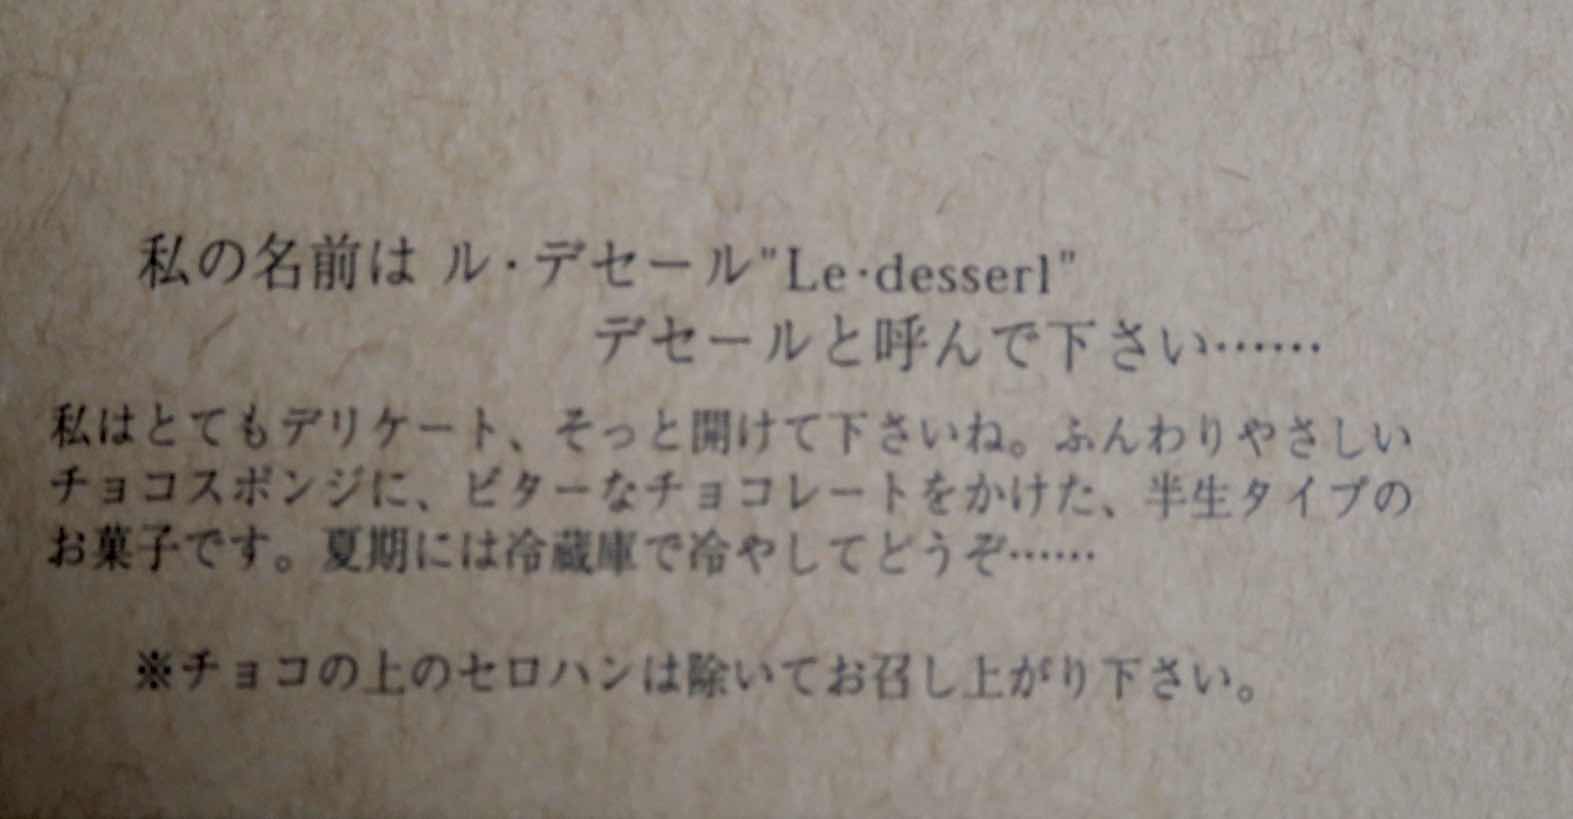 私の名前は ル・デセール"Le・desserl"
デセールと呼んで下さい……
私はとてもデリケート、そっと開けて下さいね。ふんわりやさしい
チョコスポンジに、ビターなチョコレートをかけた、半生タイプの
お菓子です。夏期には冷蔵庫で冷やしてどうぞ……
※チョコの上のセロハンは除いてお召し上がり下さい。